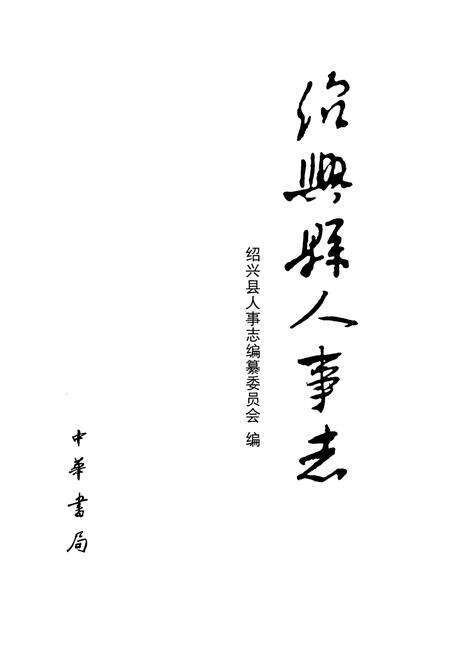 绍興縣人事志
绍兴县人事志编纂委员会 编
中華書局